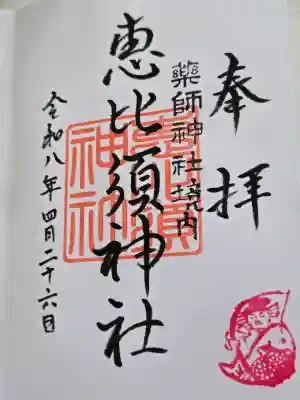 奉拝
薬師神社境内
恵比須神社
令和八年四月二十六日